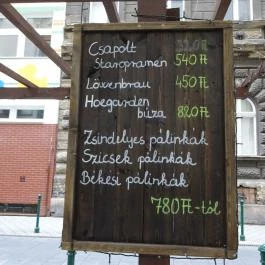 Csapolt
Staropramen 540 Ft
Löwenbrau 450 Ft
Hoegarden
búza 820 Ft
Zsindelyes pálinkák
Szicsek pálinkák
Békési pálinkák
780 Ft-tól